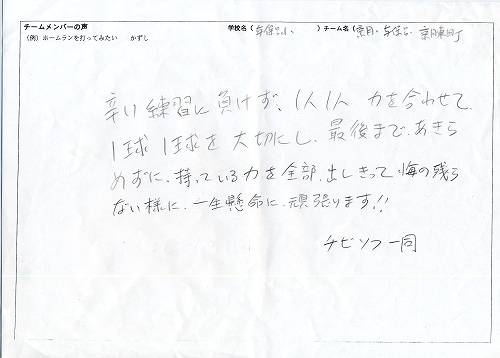 チームメンバーの声
学校名（与保呂小）チーム名（常・与保呂・京月東町
（例）ホームランを打ってみたい　かずし
辛い練習に負けず、1人1人 力を合わせて、
1球 1球を 大切にし、最後まで、あきら
めずに、持っている力を全部、出しきって 悔の残ら
ない様に、一生懸命に、頑張ります!!
チビソフ一同